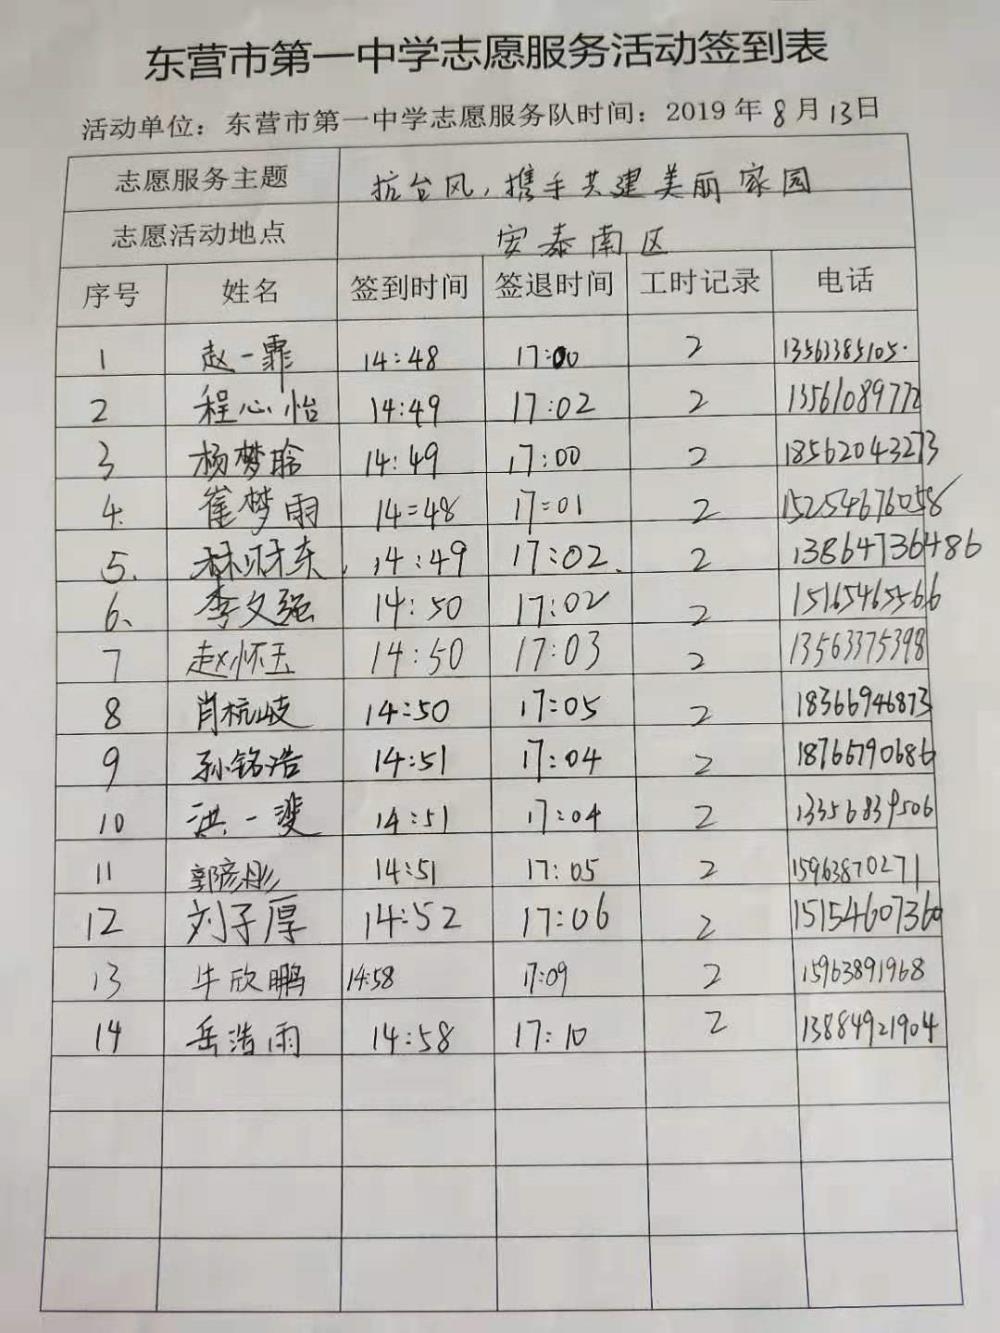 东营市第一中学志愿服务活动签到表
活动单位：东营市第一中学志愿服务队时间：2019年8月13日
志愿服务主题 抗台风，携手共建美丽家园
志愿活动地点 安泰南区
序号 姓名 签到时间 签退时间 工时记录 电话
1 赵一霏 14:48 17:00 2 13563385105.
2 程心怡 14:49 17:02 2 13561089772
3 杨梦晗 14:49 17:00 2 18562043273
4. 崔梦雨 14=48 17=01 2 15254676058
5. 14:49 17:02. 2 13864736486
6、 李文强 14:50 17:02 2 15165465566
7 赵怀玉 14:50 17:03 2 13563375398
8 肖杭岐 14:50 17:05 2 18366946873
9 孙铭浩 14:51 17:04 2 18766790686
10 洪一斐 14:51 17:04 2 13356839506
11 郭彦彤 14:51 17:05 2 15963870271
12 刘子厚 14:52 17:06 2 15154607360
13 牛欣鹏 14:58 17:09 2 15963891968
14 岳浩雨 14:58 17:10 2 13884921904